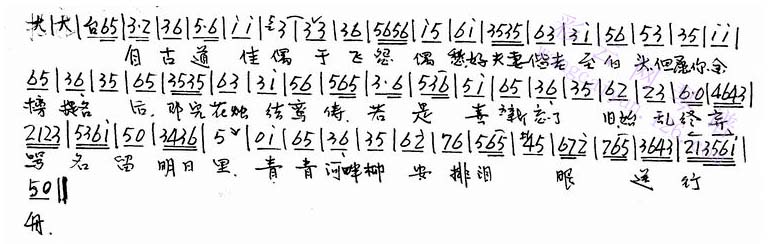 大|大|台65|3·2|36|5·6|ii|i3|35|36|5656|i5|6i|3535|63|3i|56|53|35|ii|
自古道 佳偶于飞怨偶愁好夫妻偕老至白头但愿你金
65|36|35|65|3535|63|3i|56|565|3·6|536|5i|65|36|35|62|23|6·0|4643|
榜题名后,那 花烛结鸾俦.若是喜新忘了旧始乱终弃
2123|536i|50|3436|5|0i|65|36|35|62|76|565|45|672|765|3643|21356i|
骂名留明日里,青青河畔柳安排泪眼送行
50‖
舟.